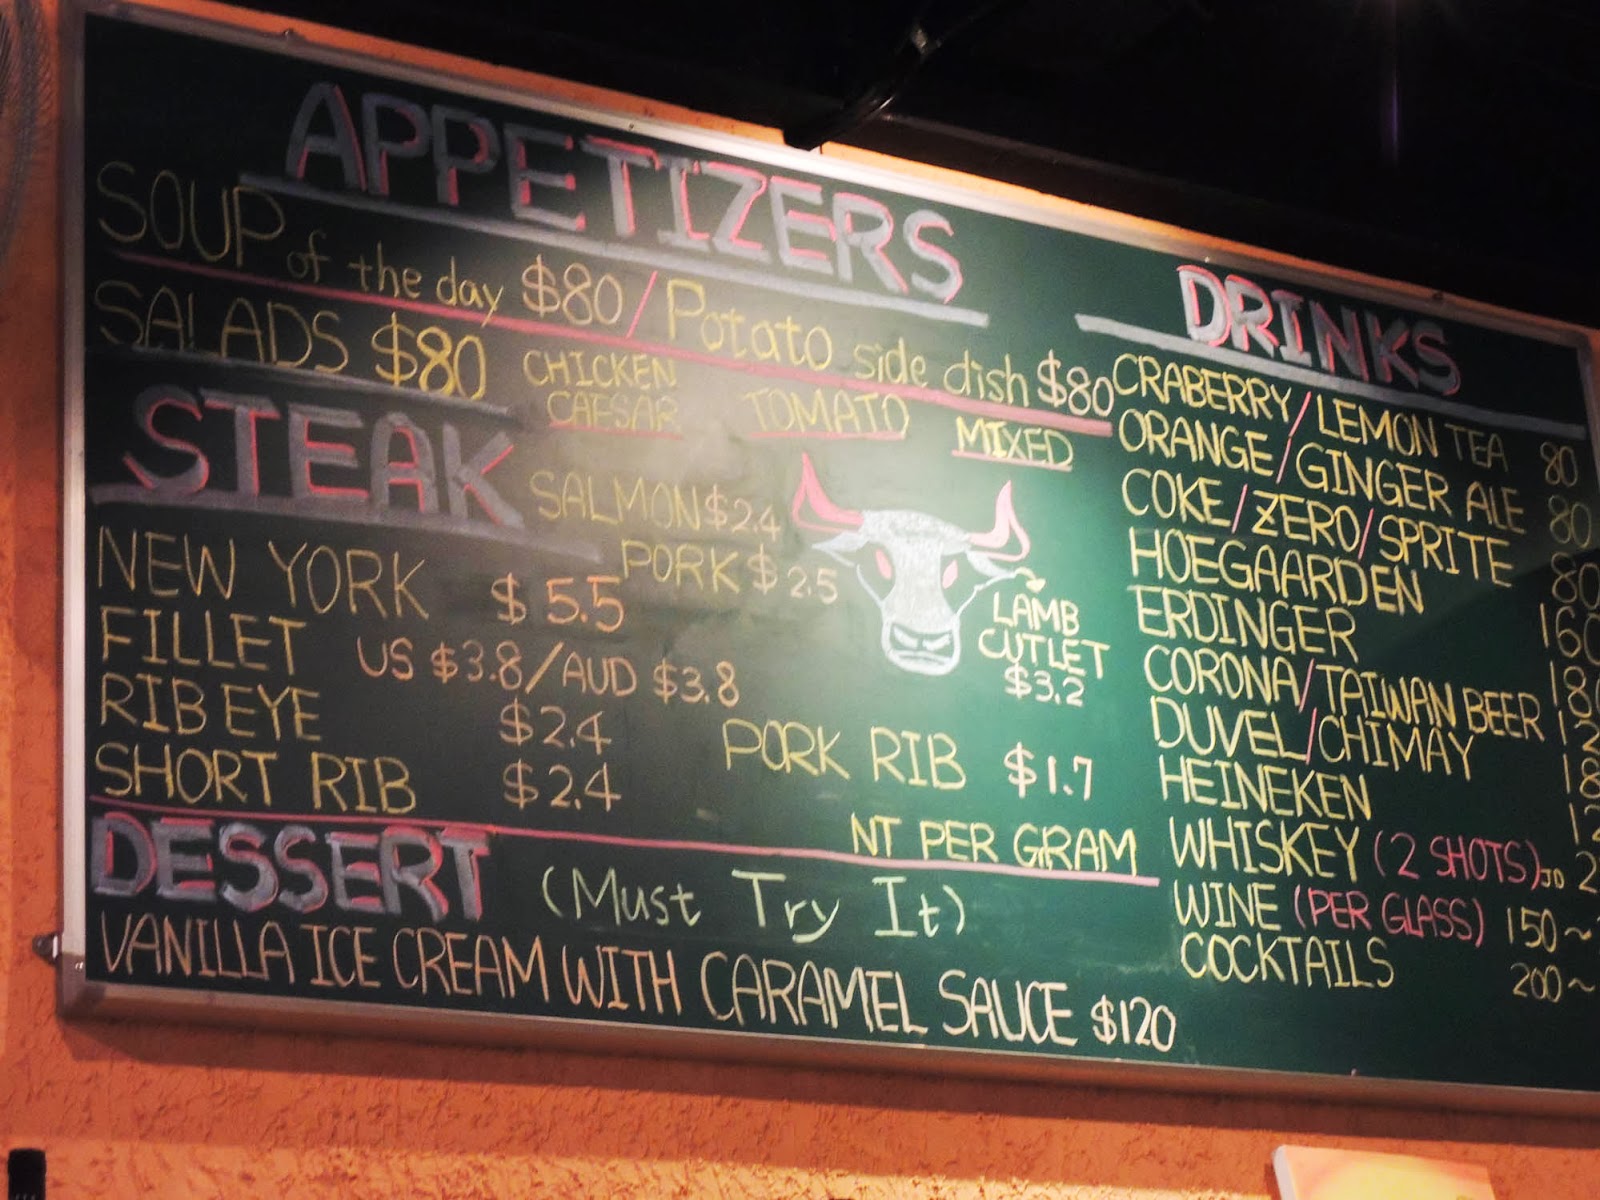 APPETIZERS
SOUP of the day $80 / Potato side dish $80
SALADS $80 CHICKEN CAESAR TOMATO MIXED
STEAK
SALMON $2.4
PORK $2.5
NEW YORK $5.5
FILLET US $3.8/AUD $3.8
RIB EYE $2.4
SHORT RIB $2.4
LAMB
CUTLET
$3.2
PORK RIB $1.7
NT PER GRAM
DESSERT (Must Try It)
VANILLA ICE CREAM WITH CARAMEL SAUCE $120
DRINKS
CRABERRY/LEMON TEA 80
ORANGE/GINGER ALE 80
COKE/ZERO/SPRITE 80
HOEGAARDEN 160
ERDINGER
CORONA/TAIWAN BEER
DUVEL/CHIMAY
HEINEKEN
WHISKEY (2 SHOTS)
WINE (PER GLASS) 150~
COCKTAILS 200~